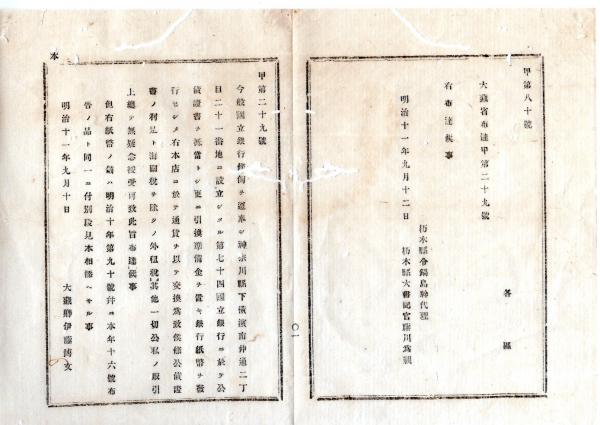 甲第八十號
各區
大藏省布達甲第二十九號
右布達候事
明治十一年九月十二日
栃木縣令鍋島幹代理
栃木縣大書記官藤川爲親
〇一
甲第二十九號
今般國立銀行條例ヲ遵奉シ神奈川縣下橫濱南仲通二丁
目二十一番地ニ設立シタル第七十四國立銀行ニ於テ公
債證書ヲ抵當トシ更ニ引換準備金ヲ置キ銀行紙幣ヲ發
行セシメ右本店ニ於テ通貨ヲ以テ交換爲致候條公債證
書ノ利足ト海關稅ヲ除クノ外租稅其他一切公私ノ取引
上總テ無疑念授受可致此旨布達候事
但右紙幣ノ儀ハ明治十年第九十號幷ニ本年十六號布
告ノ品ト同一ニ付別段見本相添ヘサル事
明治十一年九月十日
大藏卿伊藤博文
本